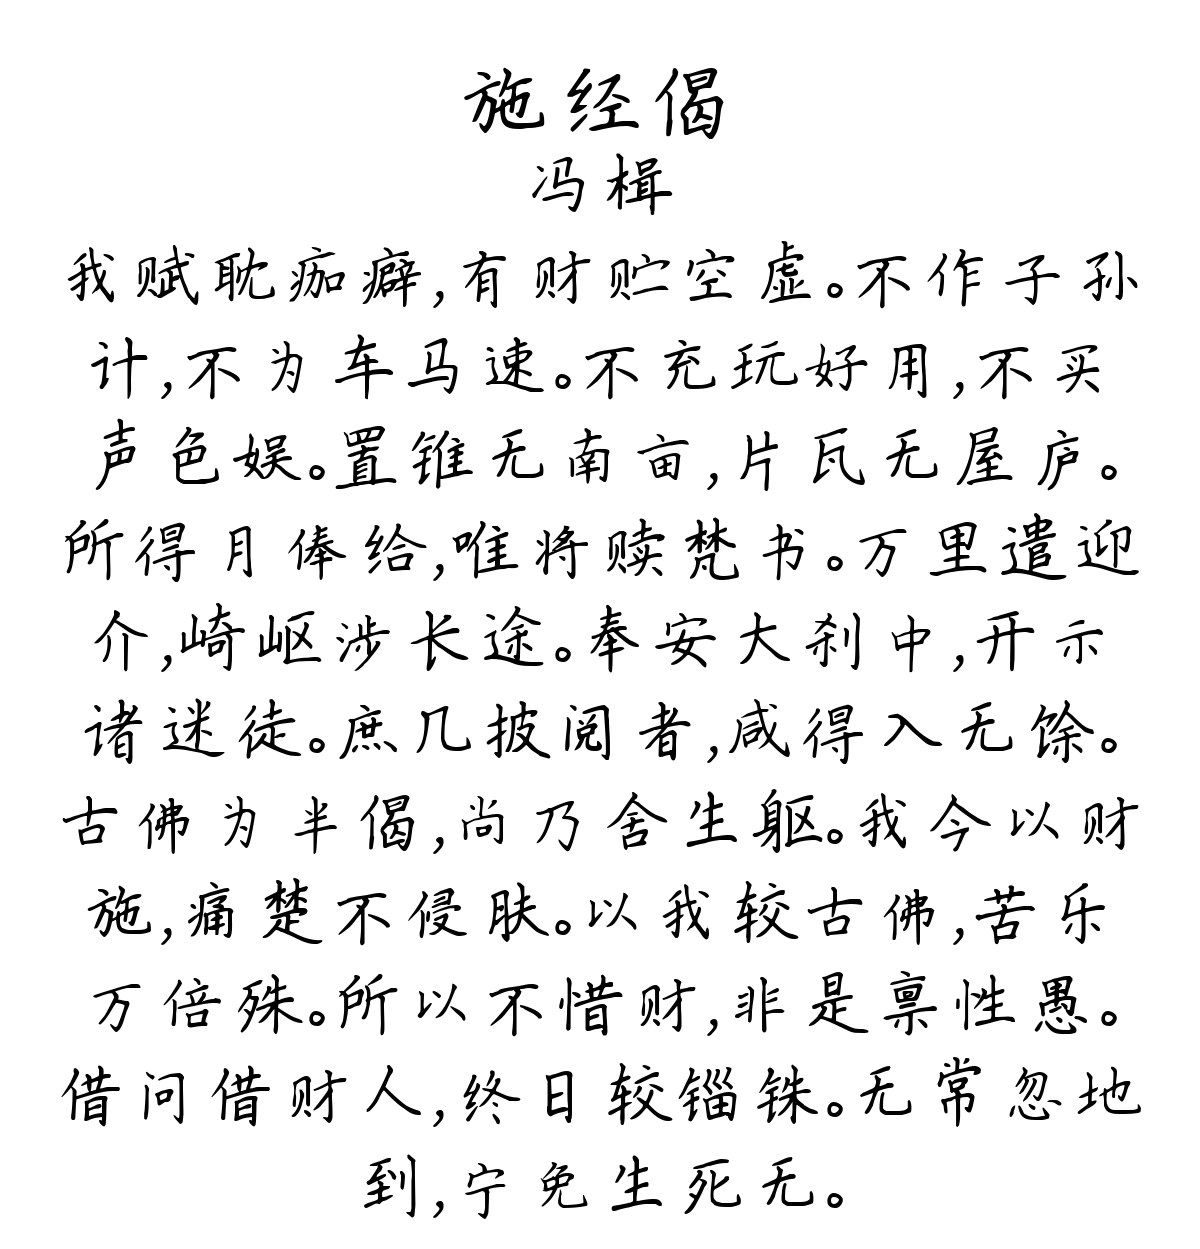 施经偈
冯楫
我赋耽痂癖,有财贮空虚。不作子孙
计,不为车马速。不充玩好用,不买
声色娱。置锥无南亩,片瓦无屋庐。
所得月俸给,唯将赎梵书。万里遣迎
介,崎岖涉长途。奉安大刹中,开示
诸迷徒。庶几披阅者,咸得入无馀。
古佛为半偈,尚乃舍生躯。我今以财
施,痛楚不侵肤。以我较古佛,苦乐
万倍殊。所以不惜财,非是禀性愚。
借问借财人,终日较锱铢。无常忽地
到,宁免生死无。